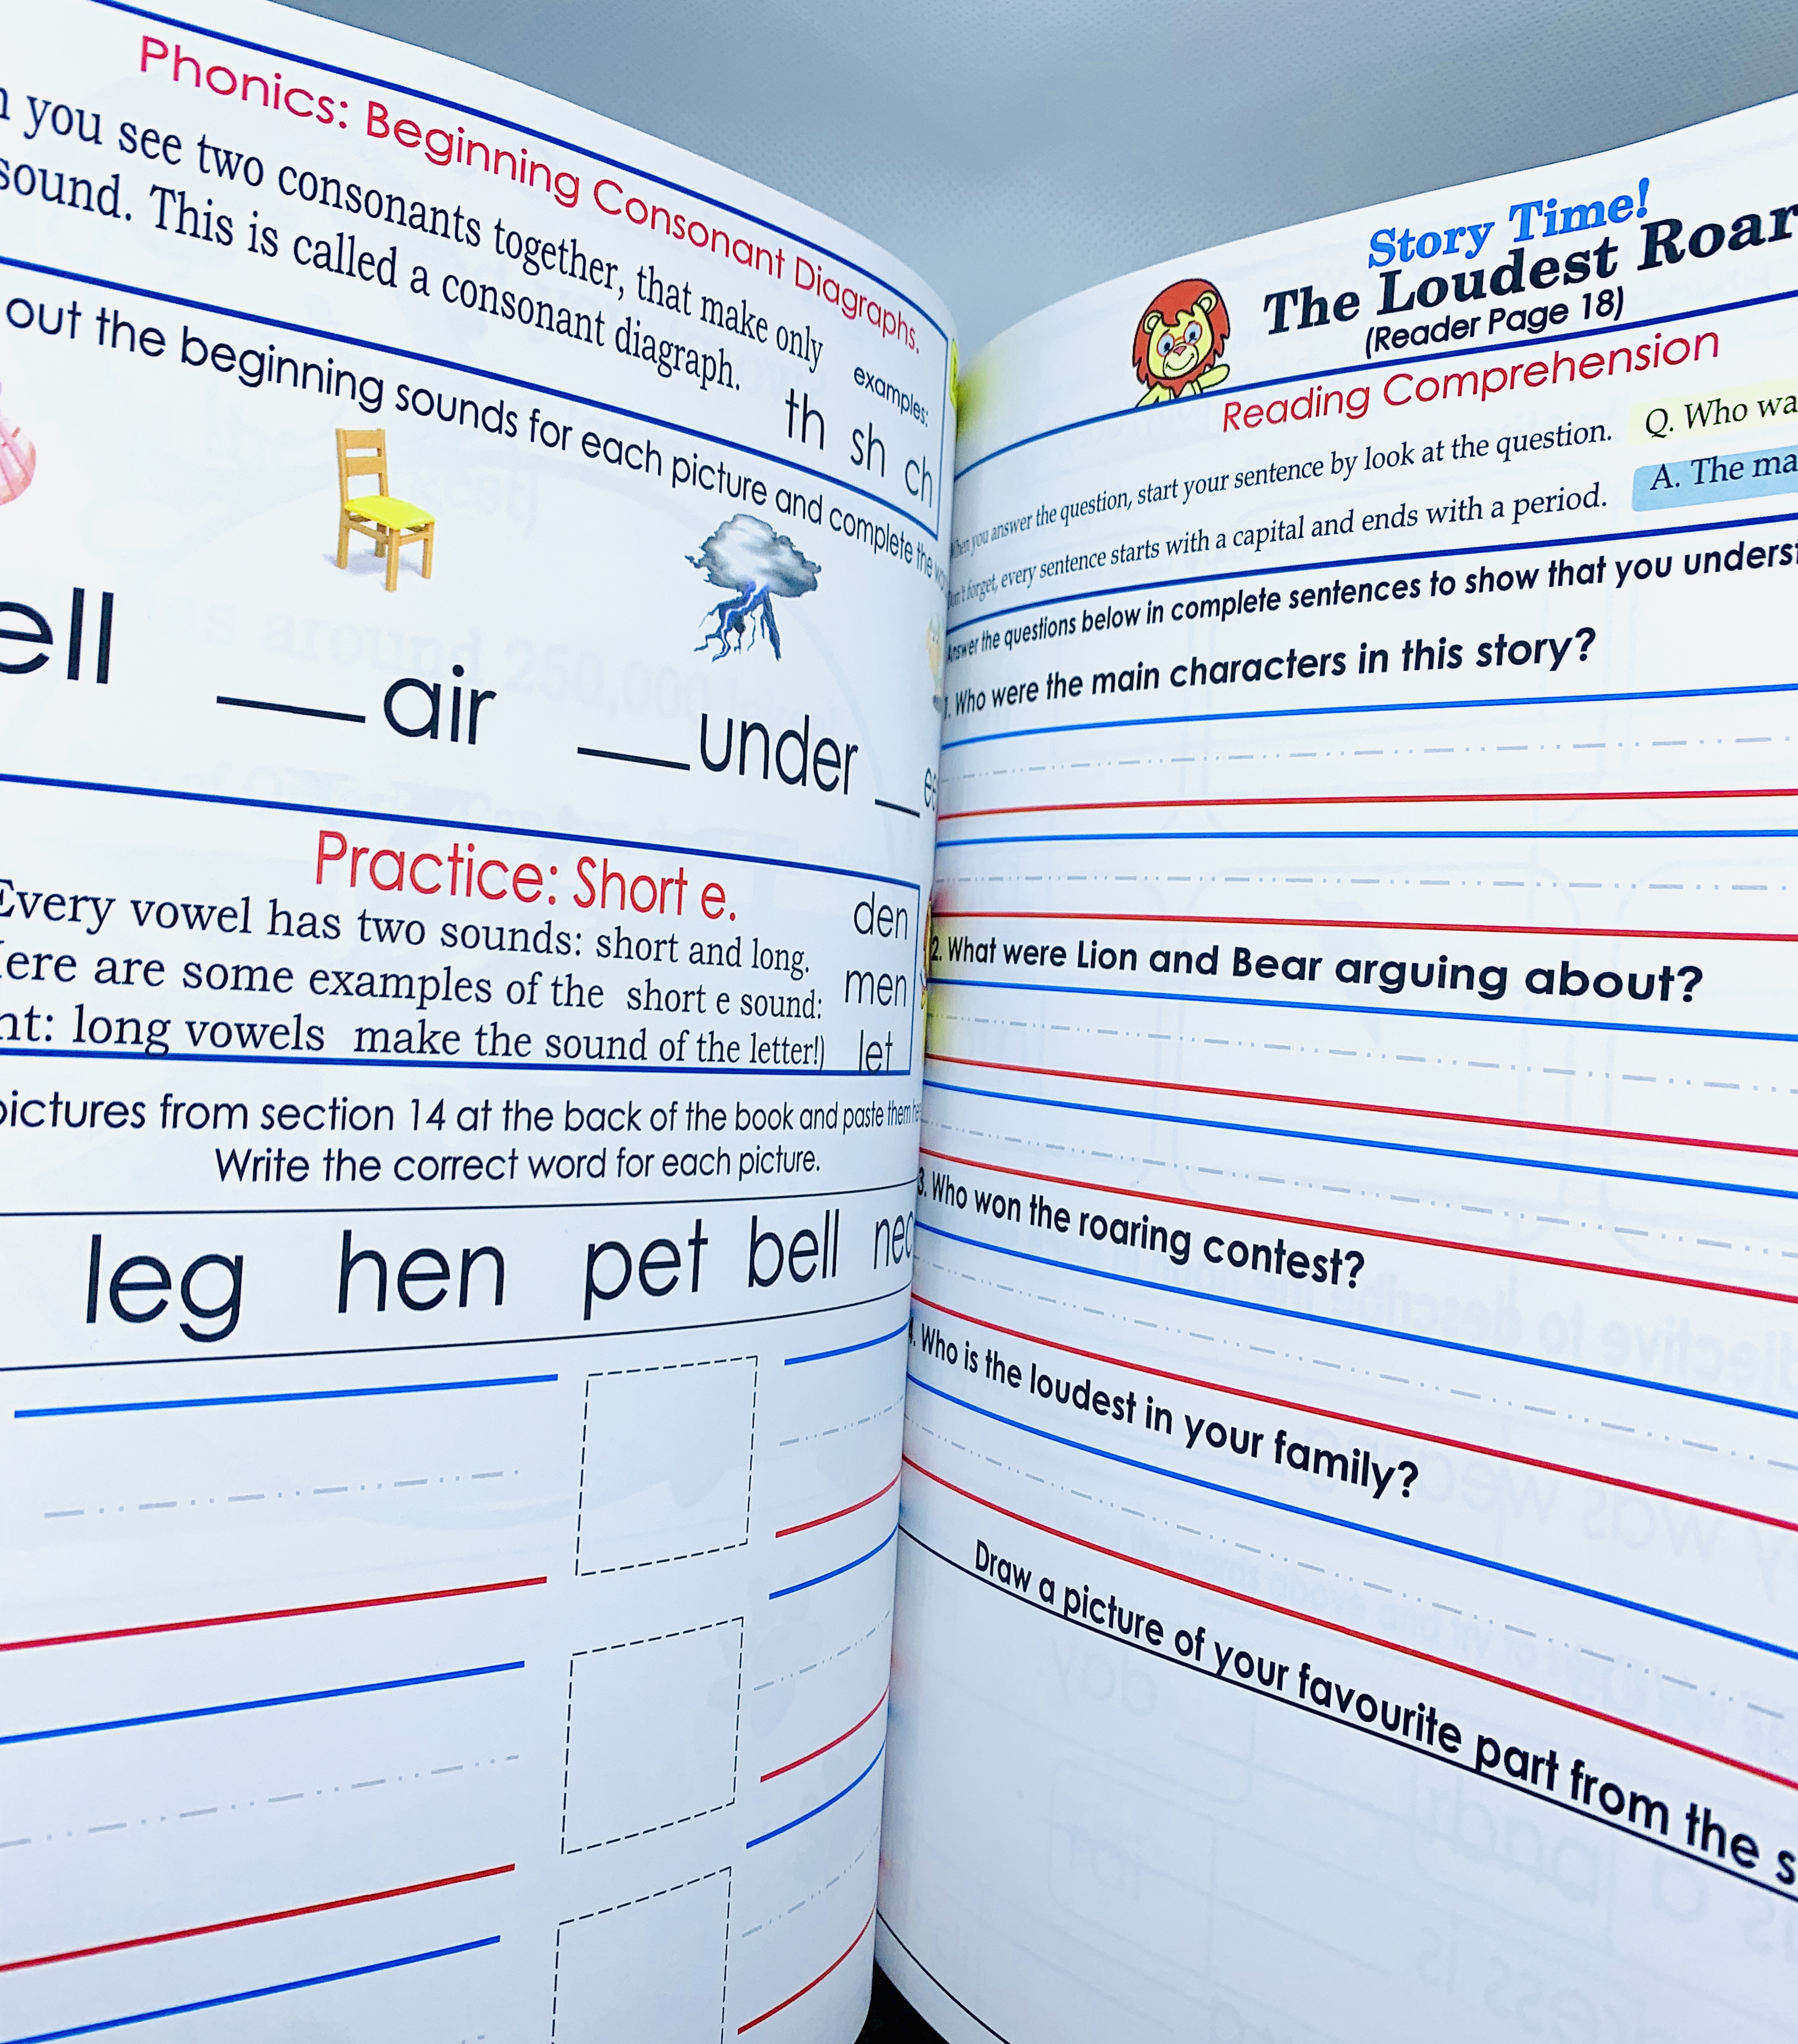 Phonics: Beginning Consonant Diagraphs.
you see two consonants together, that make only
sound. This is called a consonant diagraph.
examples:
th sh ch
out the beginning sounds for each picture and complete the
ell ___air ___under
Practice: Short e.
Every vowel has two sounds: short and long.
Here are some examples of the short e sound:
long vowels make the sound of the letter!)
den
men
let
pictures from section 14 at the back of the book and paste them
Write the correct word for each picture.
leg hen pet bell
Story Time!
The Loudest Roar
(Reader Page 18)
Reading Comprehension
When you answer the question, start your sentence by look at the question.
Don't forget, every sentence starts with a capital and ends with a period.
Q. Who wa
A. The ma
Answer the questions below in complete sentences to show that you
1. Who were the main characters in this story?
2. What were Lion and Bear arguing about?
3. Who won the roaring contest?
4. Who is the loudest in your family?
Draw a picture of your favourite part from the s